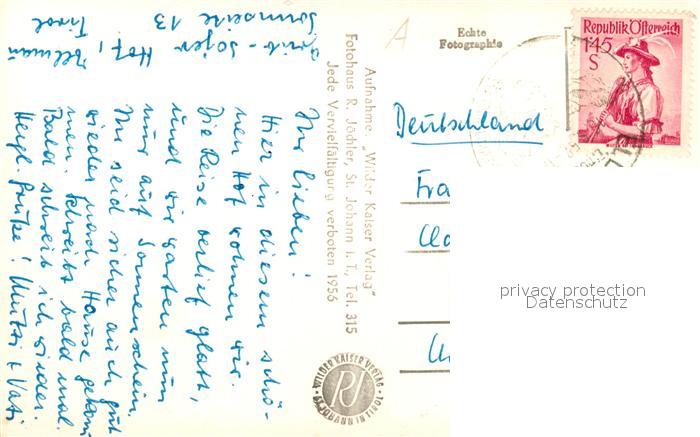 Ihr lieben!
Hier in diesem schö-
nen Hof wohnen wir.
Die Reise verlief glatt,
und wir warten nun
nur auf Sonnenschein.
Ihr seid sicher auch gut
wieder nach Hause gekom
men. Schreibt bald mal.
Bald schreib ich wieder.
Herzl. Grüße! Mutti + Vati
Hof,
Sonnseite 13
Tirol
Aufnahme: „Wilder Kaiser Verlag"
Fotohaus R. Jöchler, St. Johann i. T., Tel. 315
Jede Vervielfältigung verboten 1956
WILDER KAISER VERLAG
ST. JOHANN IN TIROL
A
Echte
Fotographie
Republik Österreich
1·45
S
Deutschland
Fra
privacy protection
Datenschutz